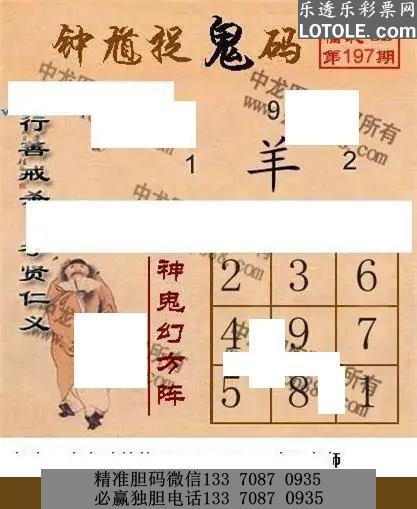 乐透乐彩票网
LOTOLE.COM
钟馗捉鬼码
第197期
行善戒
贤仁义
9
1
羊
2
神鬼幻方阵
2 3 6
4 9 7
5 8 1
师
精准胆码微信133 7087 0935
必赢独胆电话133 7087 0935